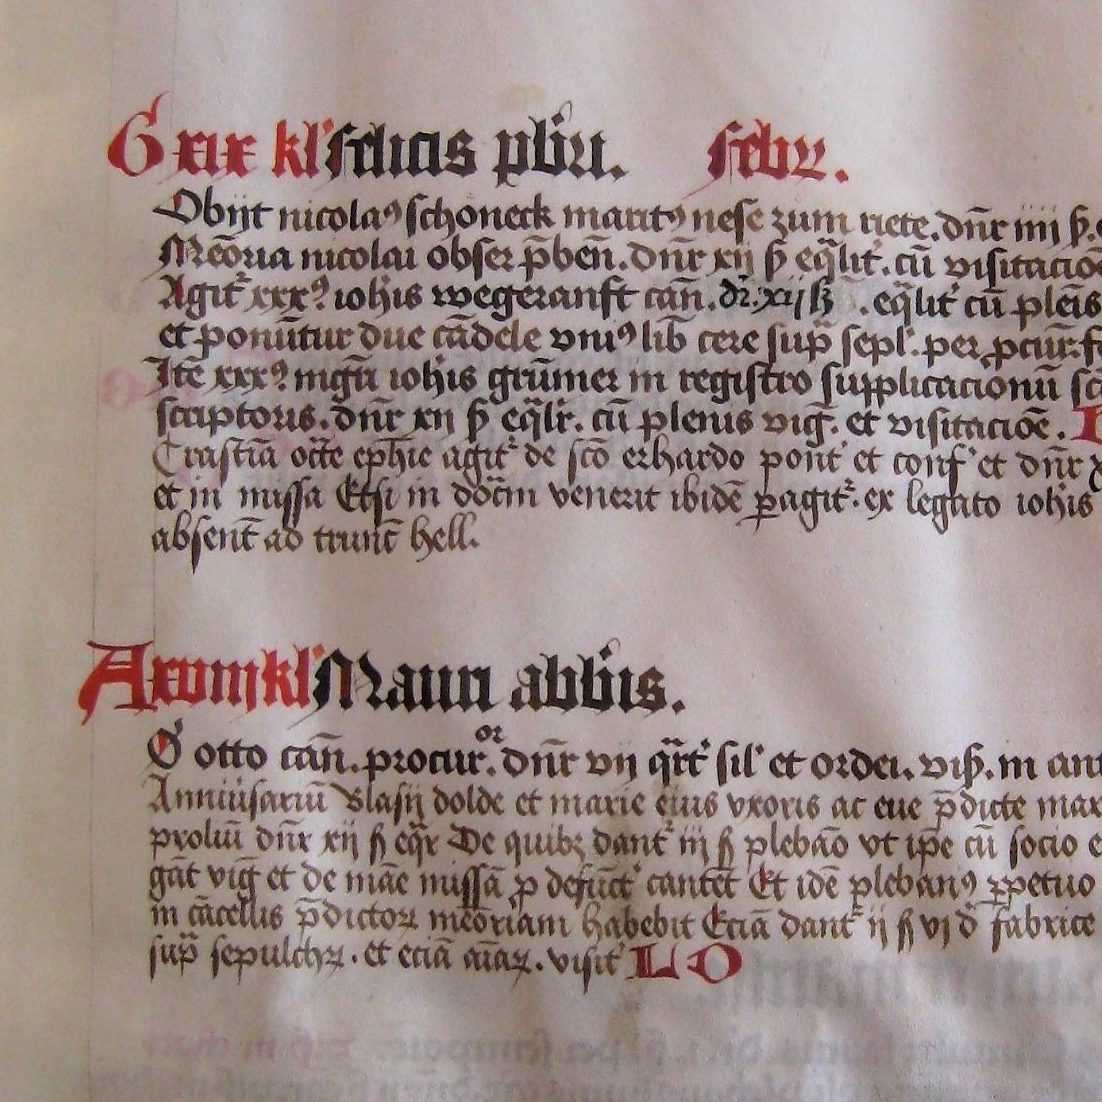 G xix kl' felicis pb̄ri. febr.
Obijt nicola⁹ schoneck marit⁹ nese zum riete. dn̄r iiij ß.
Mēoria nicolai obser p̄ben̄. dn̄r xij ß eq̄lit'. cū visitacio
Agit' xxx⁹ ioh̄is wegeranft can̄. dr̄. xij ß. eq̄lit' cū plēis
et ponūtur due cādele vni⁹ lib̄ cere sup̄ sepl'. per pcur.
Itē xxx⁹ mgr̄i ioh̄is grūmer in registro supplicacionū
scriptoris. dn̄r xij ß eq̄lr. cū plenis viḡ. et visitaciōe.
Crastīa oct̄e eph̄ie agit' de sc̄o erhardo pont' et conf' et dn̄r x
et in missa Etsi in doc̄m venerit ibidē pagit'. ex legato ioh̄is
absent̄ ad trunc̄ hell.
A xviij kl' Mauri abb̄tis.
O' otto can̄. procur^or. dn̄r vij q̄rt' sil' et ordei. vi ß. in
Anniu'sariū blasij dolde et marie eius vxoris ac eue p̄dicte
proliū dn̄r xij ß eq̄r De quib⁊ dant' iij ß plebāo vt ip̄e cū socio
gāt viḡ et de māe missā p defūct' cantēt Et idē pleban⁹ ppetuo
in cācellis p̄dictoꝝ mēoriam habebit Eciā dant' ij ß vj d' fabrice
sup̄ sepulchꝝ. et eciā aīaꝝ. visit' L O